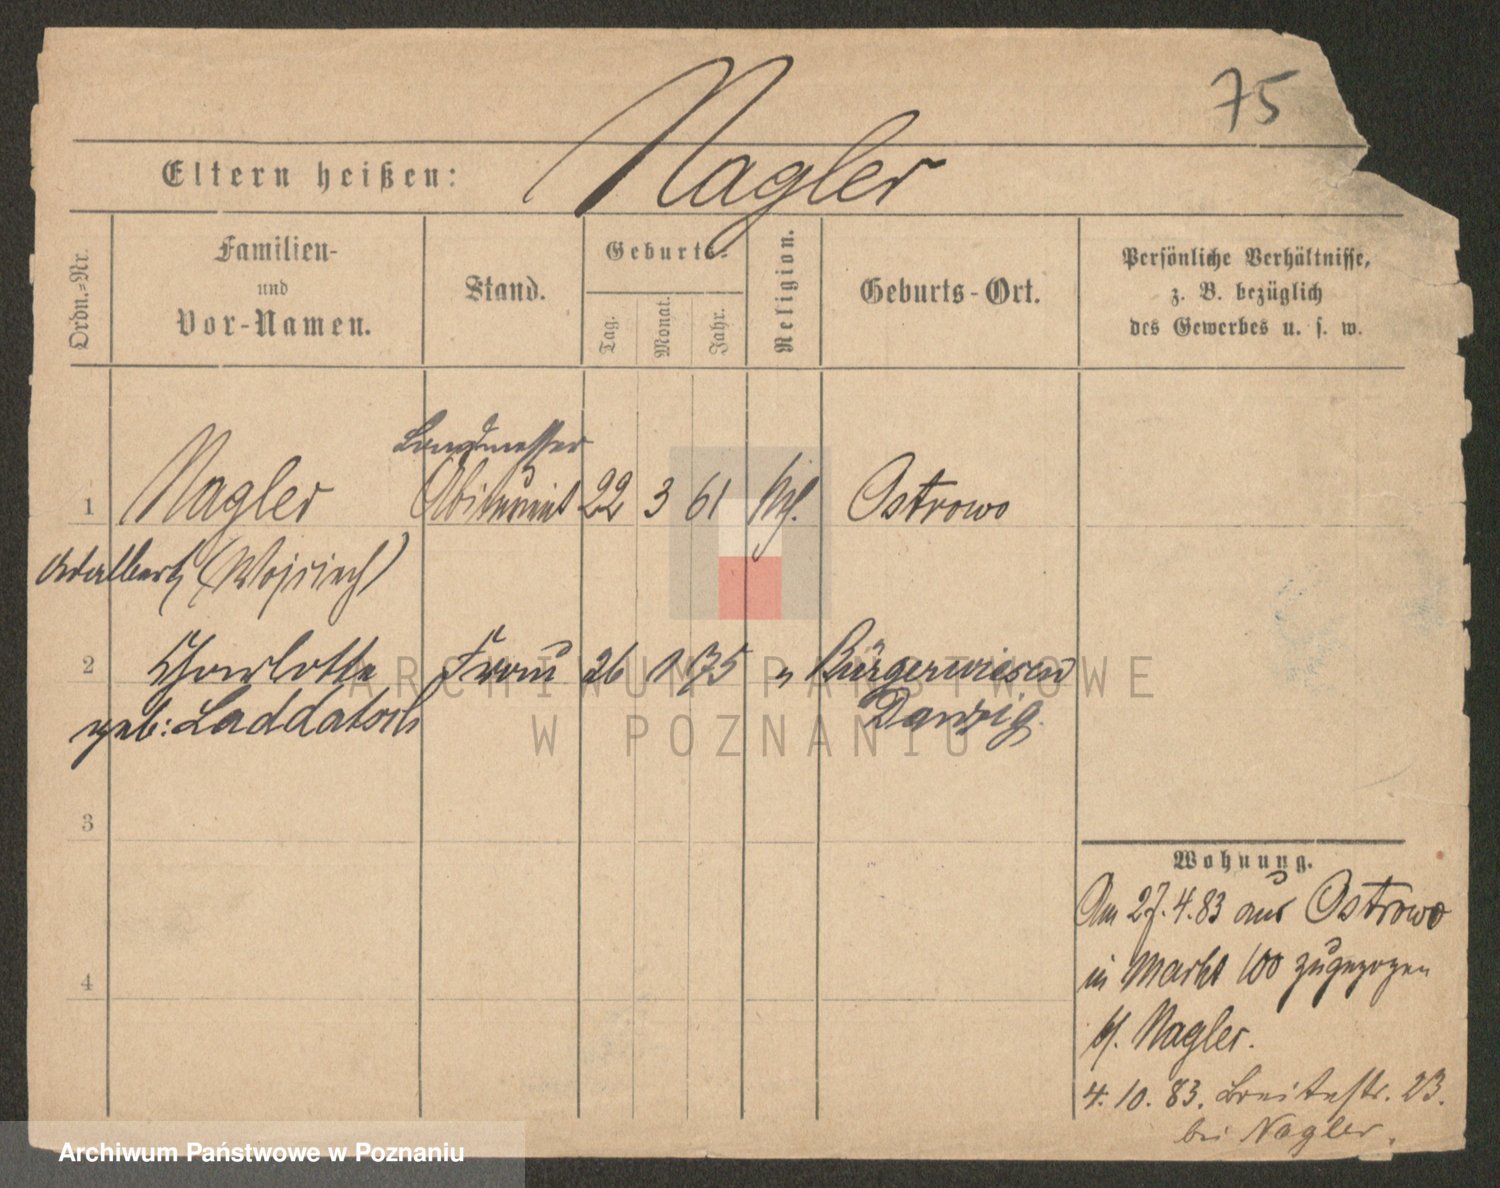 75
Eltern heißen: Nagler
Ordn.=Nr.
Familien-
und
Vor-Namen.
Stand.
Geburts-
Tag.
Monat.
Jahr.
Religion.
Geburts-Ort.
Persönliche Verhältnisse,
z. B. bezüglich
des Gewerbes u. s. w.
Landmesser
1 Nagler Abiturient 22 3 61 kth. Ostrowo
Adalbert (Wojciech)
2 Charlotte Frau 26 1 75 " Bürgerwiesen
geb: Laddatsch Danzig.
3
4
Wohnung.
Am 27.4.83 aus Ostrowo
in Markt 100 zugezogen
b/. Nagler.
4.10.83. Breitestr. 23.
bei Nagler.
ARCHIWUM PAŃSTWOWE
W POZNANIU
Archiwum Państwowe w Poznaniu